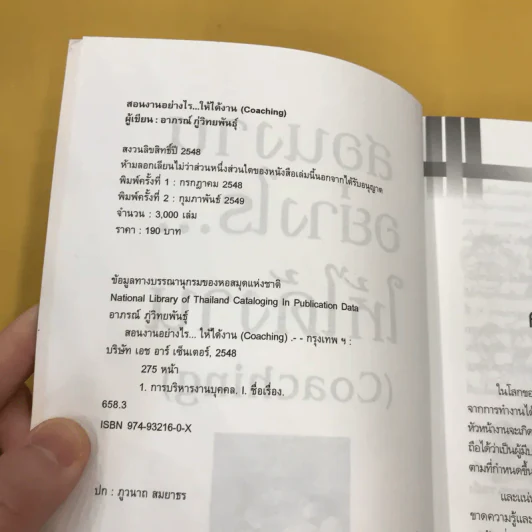 สอนงานอย่างไร...ให้ได้งาน (Coaching)
ผู้เขียน : อาภรณ์ ภู่วิทยพันธุ์
สงวนลิขสิทธิ์ปี 2548
ห้ามลอกเลียนไม่ว่าส่วนหนึ่งส่วนใดของหนังสือเล่มนี้นอกจากได้รับอนุญาต
พิมพ์ครั้งที่ 1 : กรกฎาคม 2548
พิมพ์ครั้งที่ 2 : กุมภาพันธ์ 2549
จำนวน : 3,000 เล่ม
ราคา : 190 บาท
ข้อมูลทางบรรณานุกรมของหอสมุดแห่งชาติ
National Library of Thailand Cataloging In Publication Data
อาภรณ์ ภู่วิทยพันธุ์
สอนงานอย่างไร... ให้ได้งาน (Coaching) .- - กรุงเทพ ฯ :
บริษัท เอช อาร์ เซ็นเตอร์, 2548
275 หน้า
1. การบริหารงานบุคคล. I. ชื่อเรื่อง.
658.3
ISBN 974-93216-0-X
ปก : ภูวนาถ สมยาธร
ในโลกขอ
จากการทำงานได้
หัวหน้างานจะเกิด
ถือได้ว่าเป็นผู้มีบ
ตามที่กำหนดขึ้น
และแน่น
ขาดความรู้และ